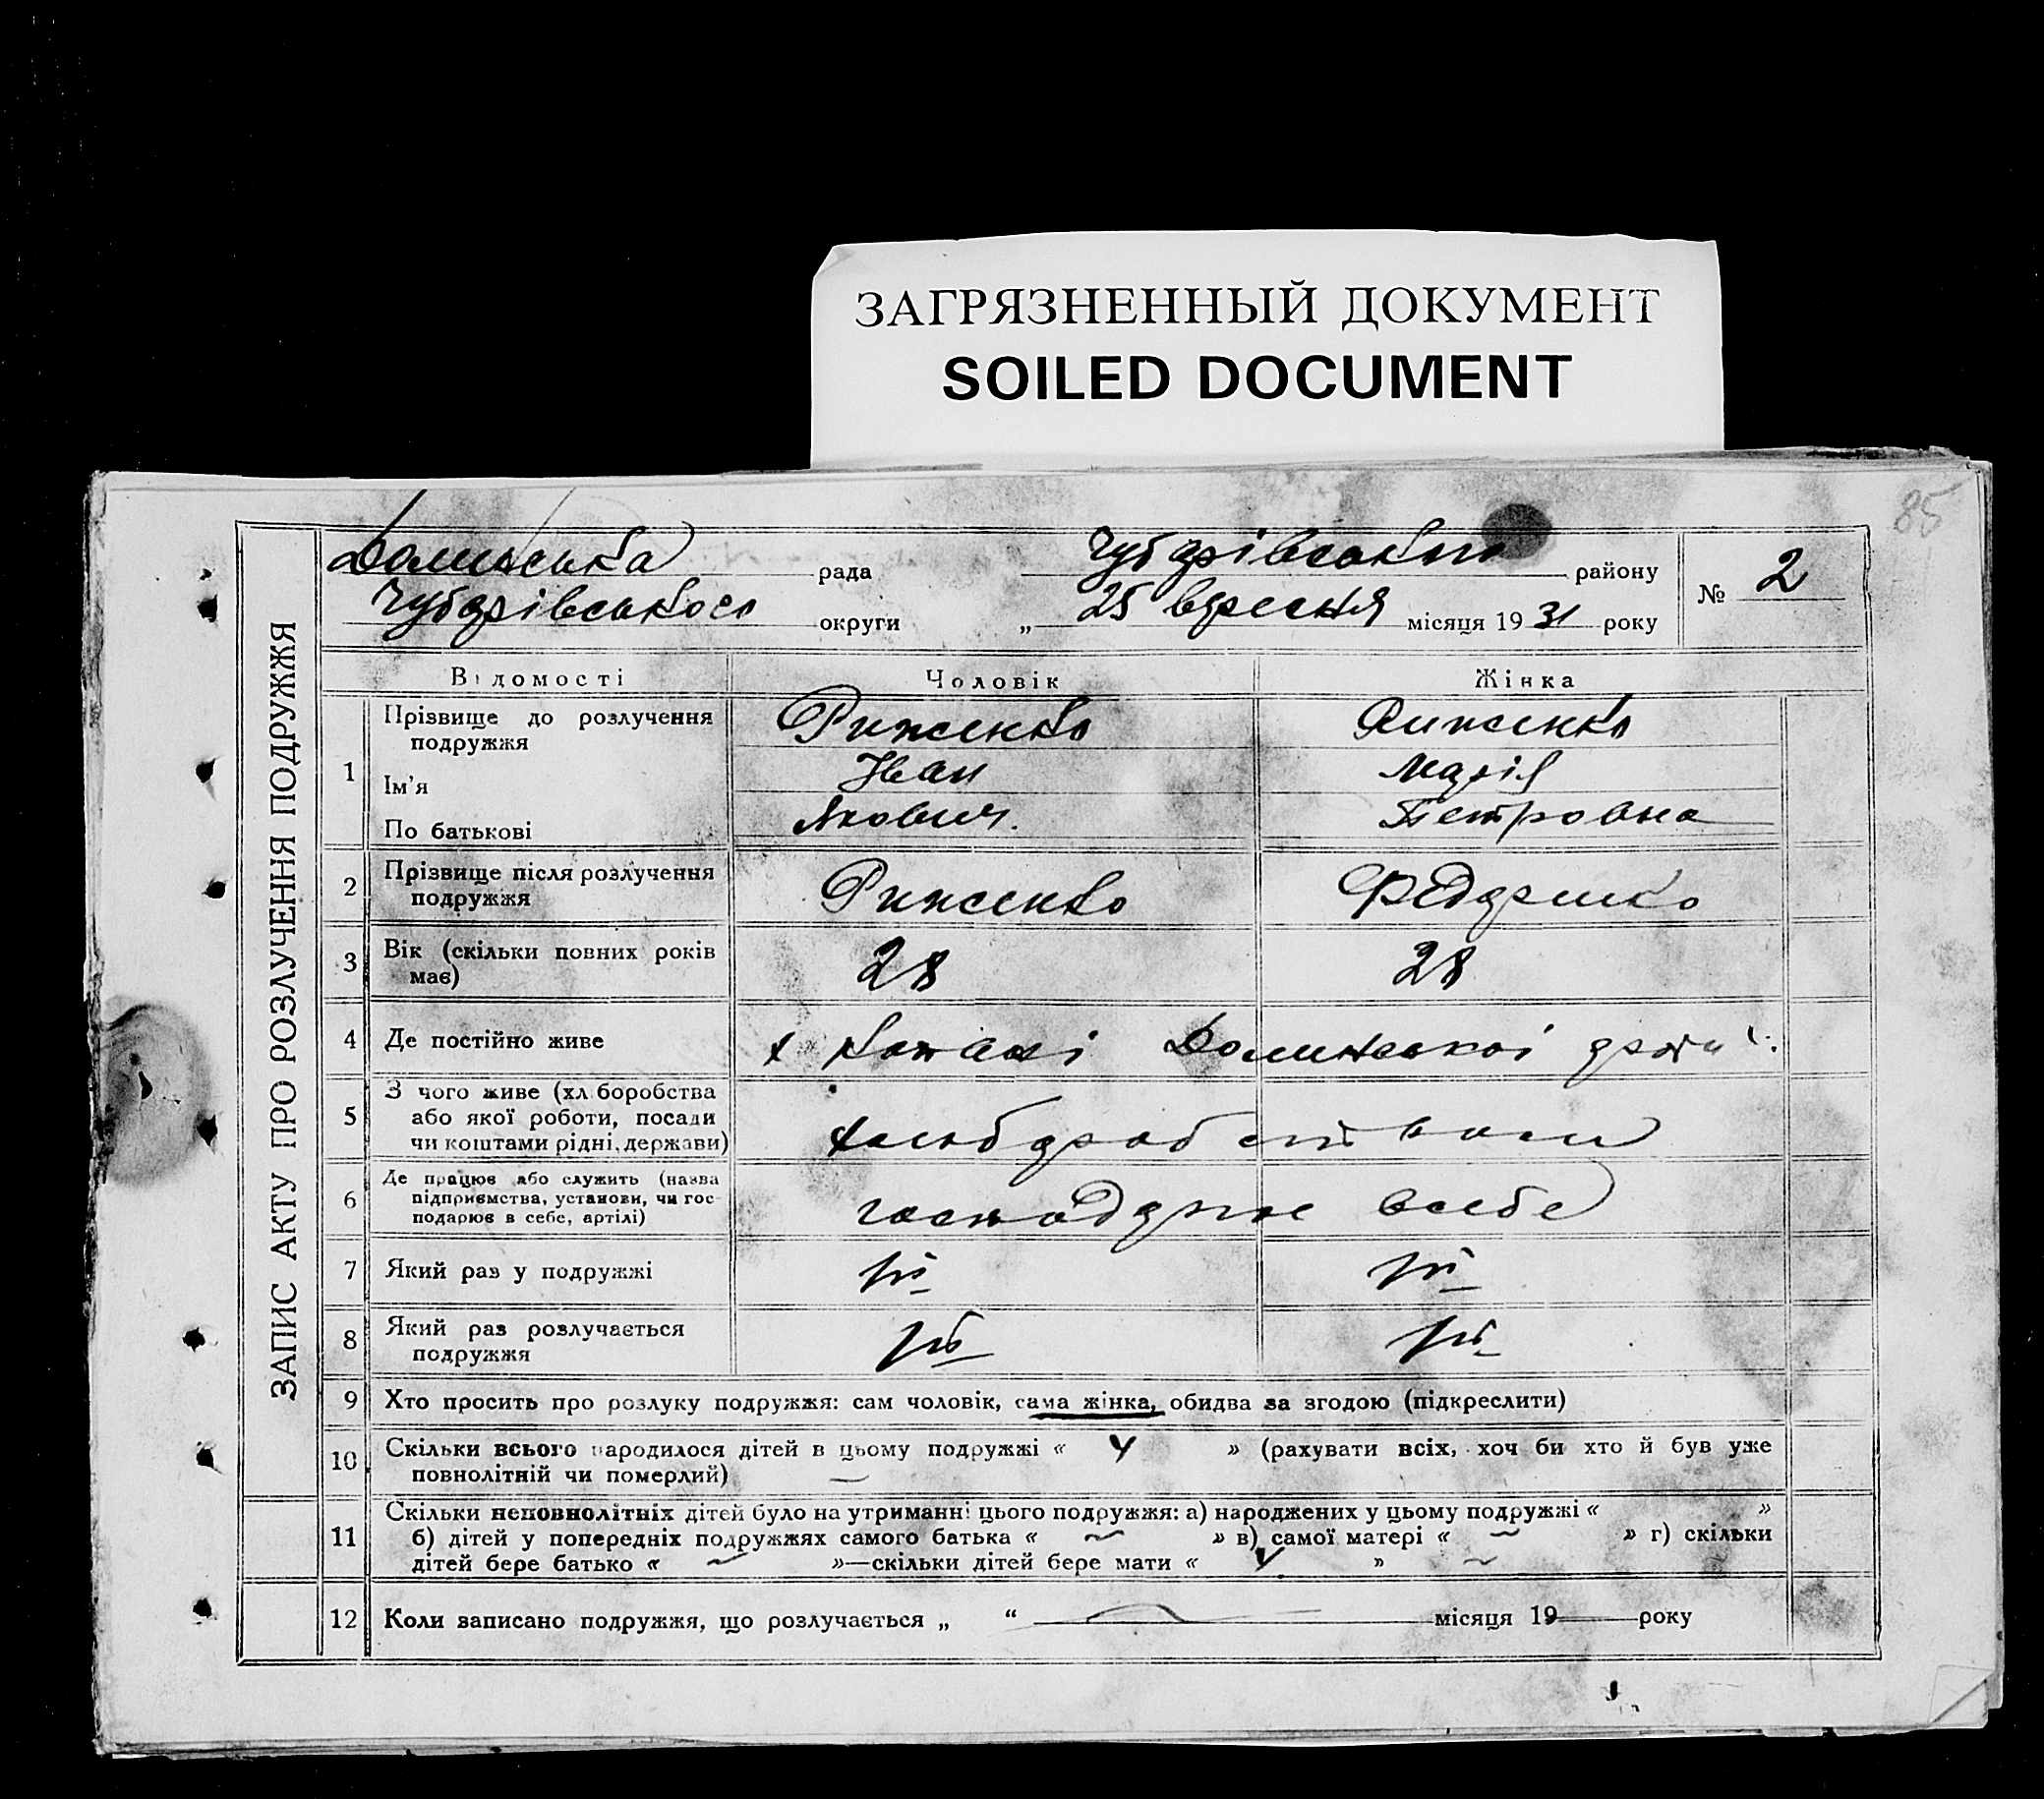 ЗАГРЯЗНЕННЫЙ ДОКУМЕНТ
SOILED DOCUMENT
85
ЗАПИС АКТУ ПРО РОЗЛУЧЕННЯ ПОДРУЖЖЯ
Долинська рада Чубарівського району № 2
Чубарівського округи „ 25 вересня місяця 1931 року
Відомості Чоловік Жінка
1 Прізвище до розлучення подружжя Риженко Риженко
Ім'я Іван Марія
По батькові Якович. Петровна
2 Прізвище після розлучення подружжя Риженко
3 Вік (скільки повних років має) 28 28
4 Де постійно живе х Долинської ради
5 З чого живе (хліборобства або якої роботи, посади чи коштами рідні, держави)
6 Де працює або служить (назва підприємства, установи, чи господарює в себе, артілі) господарює всебе
7 Який раз у подружжі
8 Який раз розлучається подружжя
9 Хто просить про розлуку подружжя: сам чоловік, сама жінка, обидва за згодою (підкреслити)
10 Скільки всього народилося дітей в цьому подружжі « 4 » (рахувати всіх, хоч би хто й був уже
повнолітній чи померлий)
11 Скільки неповнолітніх дітей було на утриманні цього подружжя: а) народжених у цьому подружжі « »
б) дітей у попередніх подружжях самого батька « » в) самої матері « » г) скільки
дітей бере батько « »—скільки дітей бере мати « 4 »
12 Коли записано подружжя, що розлучається „ “ місяця 19 року